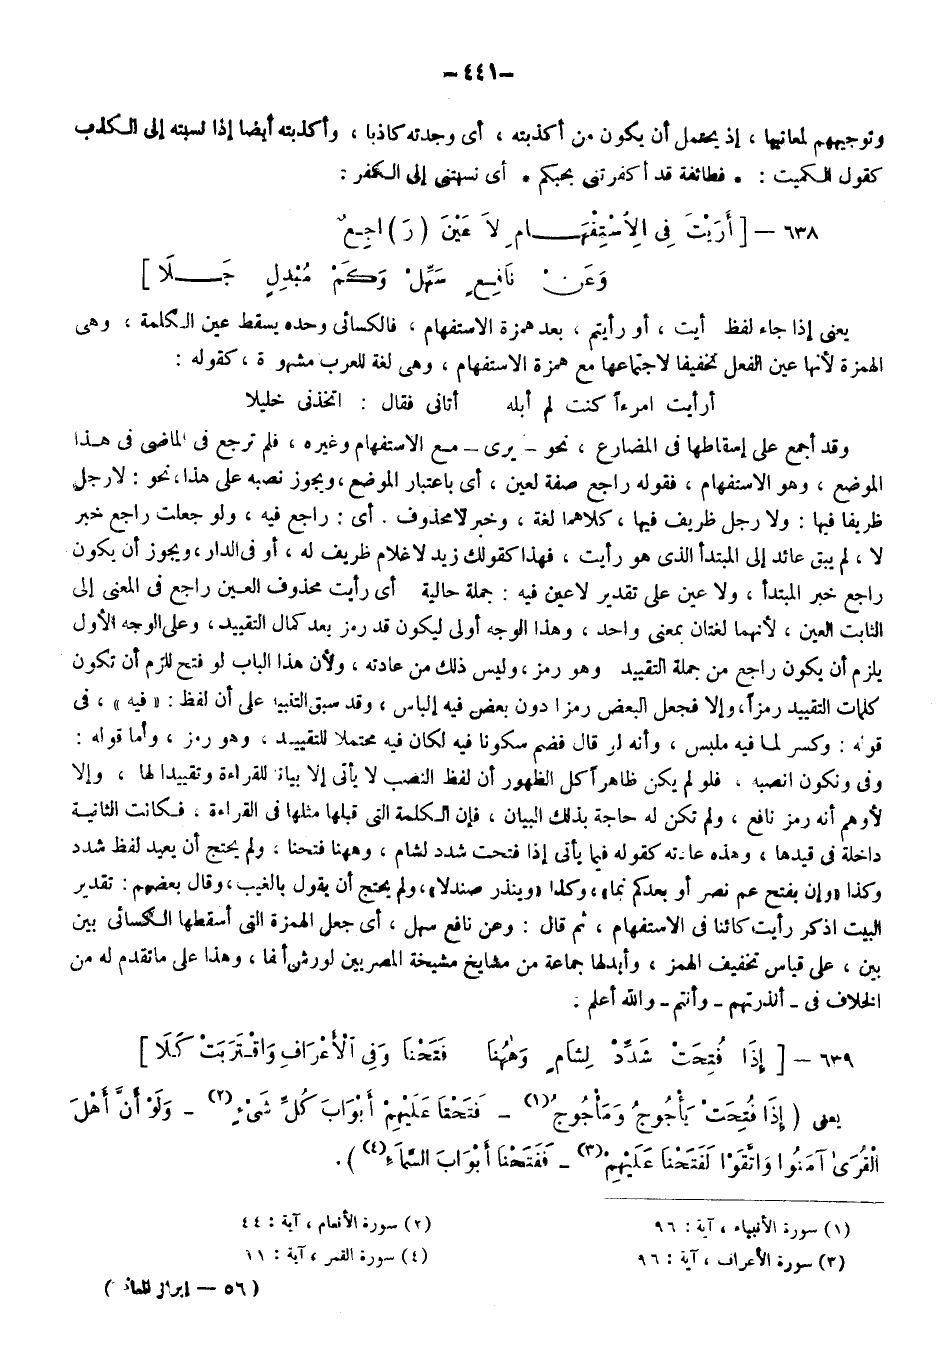 -٤٤١-
وتوجيههم لمعانيها ، إذ يحتمل أن يكون من أكذبته ، أى وجدته كاذبا ، وأكذبته أيضا إذا نسبته إلى الكذب
كقول الكميت : • فطائفة قد أكفرتنى بحبكم • أى نسبتنى إلى الكفر :
٦٣٨ - [ أَرَيْتَ فِى الِاسْتِفْهَامِ لاَ عَيْنَ (رَ) اجِعٌ
وَعَنْ نَافِعٍ سَهِّلْ وَكَمْ مُبْدِلٍ جَلَا ]
يعنى إذا جاء لفظ أيت ، أو رأيتم ، بعد همزة الاستفهام ، فالكسائى وحده يسقط عين الكلمة ، وهى
الهمزة لأنها عين الفعل تخفيفا لاجتماعها مع همزة الاستفهام ، وهى لغة للعرب مشهو ة ، كقوله :
أرأيت امرءاً كنت لم أبله أتانى فقال : اتخذنى خليلا
وقد أجمع على إسقاطها فى المضارع ، نحو - يرى - مع الاستفهام وغيره ، فلم ترجع فى الماضى فى هذا
الموضع ، وهو الاستفهام ، فقوله راجع صفة لعين ، أى باعتبار الموضع ، ويجوز نصبه على هذا ، نحو : لا رجل
ظريفا فيها : ولا رجل ظريف فيها ، كلاهما لغة ، وخبر لا محذوف . أى : راجع فيه ، ولو جعلت راجع خبر
لا ، لم يبق عائد إلى المبتدأ الذى هو رأيت ، فهذا كقولك زيد لا غلام ظريف له ، أو فى الدار ، ويجوز أن يكون
راجع خبر المبتدأ ، ولا عين على تقدير لاعين فيه : جملة حالية أى رأيت محذوف العين راجع فى المعنى إلى
الثابت العين ، لأنهما لغتان بمعنى واحد ، وهذا الوجه أولى ليكون قد رمز بعد كمال التقييد ، وعلى الوجه الأول
يلزم أن يكون راجع من جملة التقييد وهو رمز ، وليس ذلك من عادته ، ولأن هذا الباب لو فتح للزم أن تكون
كلمات التقييد رمزاً ، وإلا فجعل البعض رمزا دون بعض فيه إلباس ، وقد سبق التنبيه على أن لفظ : « فيه » ، فى
قوله : وكسر لما فيه ملبس ، وأنه لو قال فضم سكونا فيه لكان فيه محتملا للتقييد ، وهو رمز ، وأما قوله :
وفى ونكون انصبه ، فلو لم يكن ظاهراً كل الظهور أن لفظ النصب لا يأتى إلا بيانا للقراءة وتقييدا لها ، وإلا
لأوهم أنه رمز نافع ، ولم تكن له حاجة بذلك البيان ، فإن الكلمة التى قبلها مثلها فى القراءة ، فكانت الثانية
داخلة فى قيدها ، وهذه عادته كقوله فيما يأتى إذا فتحت شدد لشام ، وههنا فتحنا ، ولم يحتج أن يعيد لفظ شدد
وكذا «وإن بفتح عم نصر أو بعدكم نما» ، وكذا «وينذر صندلا» ، ولم يحتج أن يقول بالغيب ، وقال بعضهم : تقدير
البيت اذكر رأيت كائنا فى الاستفهام ، ثم قال : وعن نافع سهل ، أى جعل الهمزة التى أسقطها الكسائى بين
بين ، على قياس تخفيف الهمز ، وأبدلها جماعة من مشايخ مشيخة المصريين لورش ألفا ، وهذا على ماتقدم له من
الخلاف فى - أنذرتهم - وأنتم - والله أعلم .
٦٣٩ - [ إِذَا فُتِحَتْ شَدِّدْ لِشَامٍ وَهٰهُنَا فَتَحْنَا وَفِى الْأَعْرَافِ وَاقْتَرَبَتْ كَلَا ]
يعنى ( إِذَا فُتِحَتْ يَأْجُوجُ وَمَأْجُوجُ(١) - فَتَحْنَا عَلَيْهِمْ أَبْوَابَ كُلِّ شَىْءٍ(٢) - وَلَوْ أَنَّ أَهْلَ
الْقُرَىٰ آمَنُوا وَاتَّقَوْا لَفَتَحْنَا عَلَيْهِمْ(٣) - فَفَتَحْنَا أَبْوَابَ السَّمَاءِ(٤) ) .
(١) سورة الأنبياء ، آية : ٩٦ (٢) سورة الأنعام ، آية : ٤٤
(٣) سورة الأعراف ، آية : ٩٦ (٤) سورة القمر ، آية : ١١
( ٥٦ - إبراز المعانى )